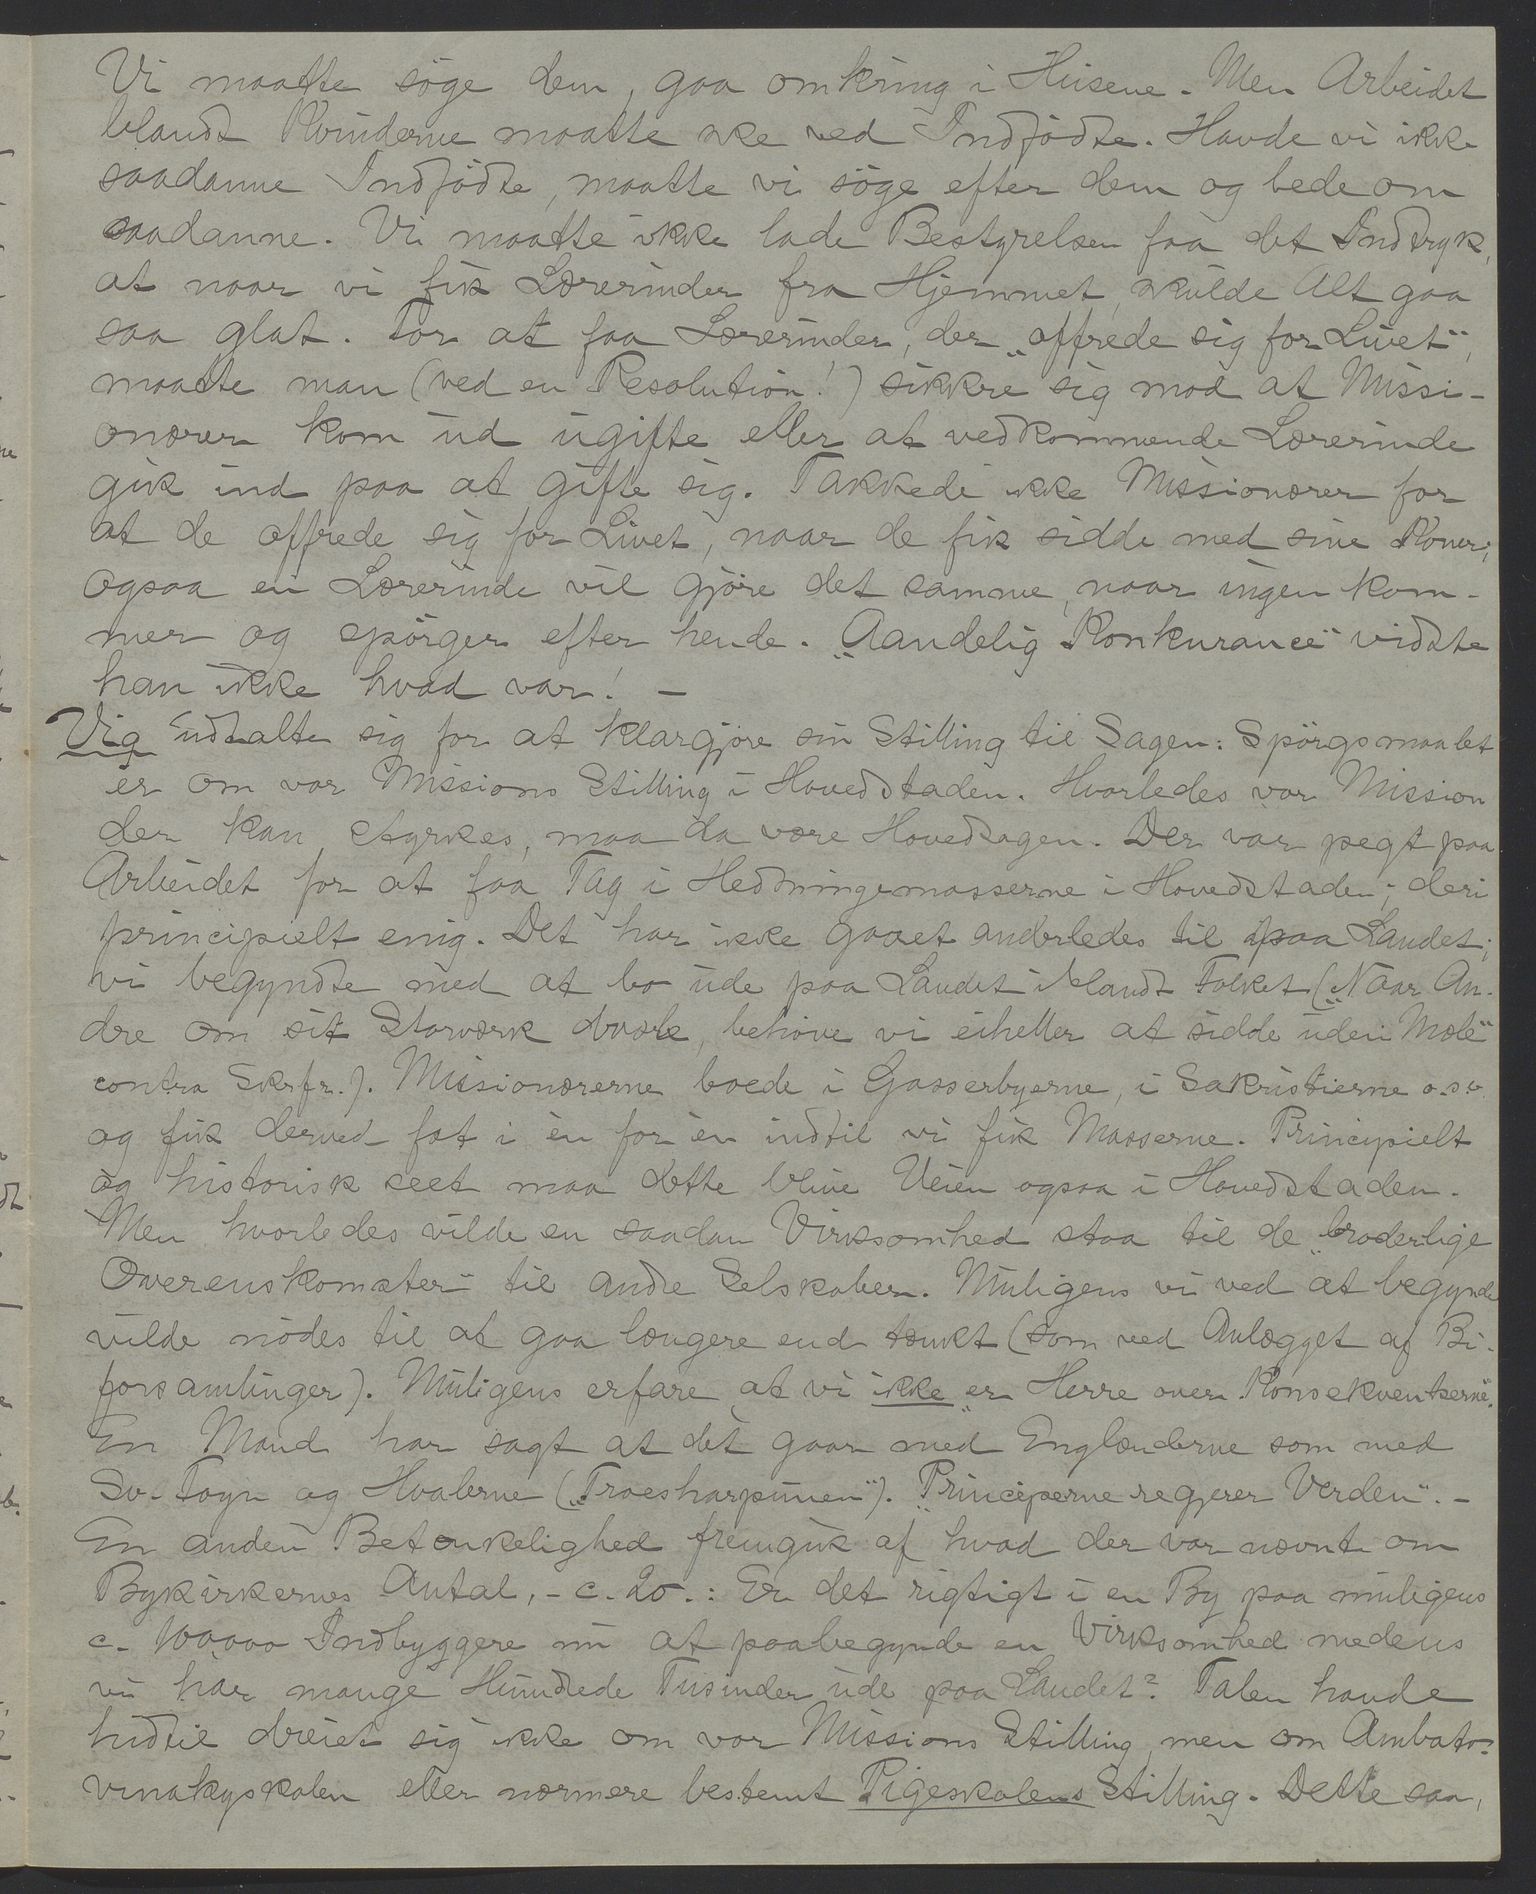 Vi maatte söge dem, gaa omkring i Husene. Men Arbeidet
blandt Kvinderne maatte ske ved Indfödte. Havde vi ikke
saadanne Indfödte, maatte vi söge efter dem og bede om
saadanne. Vi maatte ikke lade Bestyrelsen faa det Indtryk,
at naar vi fik Lærerinder fra Hjemmet, skulde Alt gaa
saa glat. For at faa Lærerinder, der „offrede sig for Livet“,
maatte man (ved en Resolution!) sikkre sig mod at Missi-
onærer kom ud ugifte eller at vedkommende Lærerinde
gik ind paa at gifte sig. Takkede ikke Missionærer for
at de offrede sig for Livet, naar de fik sidde med sine Koner;
ogsaa en Lærerinde vil gjöre det samme, naar ingen kom-
mer og spörger efter hende. „Aandelig Konkurance“ vidste
han ikke hvad var! —
Vig udtalte sig for at klargjöre sin Stilling til Sagen: Spörgsmaalet
er om vor Missions Stilling i Hovedstaden. Hvorledes vor Mission
der kan styrkes, maa da være Hovedsagen. Der var pegt paa
Arbeidet for at faa Tag i Hedningemasserne i Hovedstaden; deri
principielt enig. Det har ikke gaaet anderledes til paa Landet;
vi begyndte med at bo ude paa Landet iblandt Folket („Naar An-
dre om sit Storværk dvæle, behöve vi eiheller at sidde uden Mæle“
contra Skrfr.). Missionærerne boede i Gasserbyerne, i Sakristierne o.s.v.
og fik derved fat i èn for èn indtil vi fik Masserne. Principielt
og historisk seet maa dette blive Veien ogsaa i Hovedstaden.
Men hvorledes vilde en saadan Virksomhed staa til de „broderlige
Overenskomster“ til andre Selskaber. Muligens vi ved at begynde
vilde nödes til at gaa længere end tænkt (som ved Anlægget af Bi-
forsamlinger). Muligens erfare at vi ikke „er Herre over Konsekventserne“.
En Mand har sagt at det gaar med Englænderne som med
Sv. Foyn og Hvalerne („Troesharpunen“). „Principerne regjerer Verden“. –
En anden Betænkelighed fremgik af hvad der var nævnt om
Bykirkernes Antal, – c. 20.: Er det rigtigt i en By paa muligens
c. 100000 Indbyggere nu at paabegynde en Virksomhed medens
vi har mange Hundrede Tusinder ude paa Landet? Talen havde
hidtil dreiet sig ikke om vor Missions Stilling, men om Ambato-
vinakyskolen eller nærmere bestemt Pigeskolens Stilling. Dette saa,